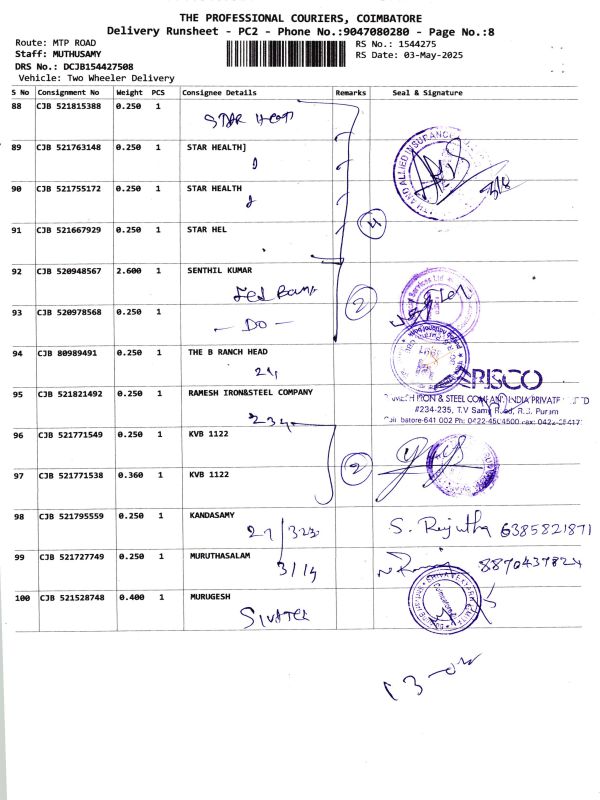 THE PROFESSIONAL COURIERS, COIMBATORE
Delivery Runsheet - PC2 - Phone No.:9047080280 - Page No.:8
Route: MTP ROAD
RS No.: 1544275
Staff: MUTHUSAMY
RS Date: 03-May-2025
DRS No.: DCJB154427508
Vehicle: Two Wheeler Delivery
S No Consignment No Weight PCS Consignee Details Remarks Seal & Signature
88 CJB 521815388 0.250 1
STAR Heat
89 CJB 521763148 0.250 1 STAR HEALTH]
90 CJB 521755172 0.250 1 STAR HEALTH
318
91 CJB 521667929 0.250 1 STAR HEL
4
92 CJB 520948567 2.600 1 SENTHIL KUMAR
2
93 CJB 520978568 0.250 1
- DO -
94 CJB 80989491 0.250 1 THE B RANCH HEAD
24
RISCO
95 CJB 521821492 0.250 1 RAMESH IRON&STEEL COMPANY
IRON & STEEL COMPANY INDIA PRIVATE
#234-235, T.V Samy Road, R.S. Puram
234
96 CJB 521771549 0.250 1 KVB 1122
2
97 CJB 521771538 0.360 1 KVB 1122
98 CJB 521795559 0.250 1 KANDASAMY
27/323
S. Rejutha 6385821871
99 CJB 521727749 0.250 1 MURUTHASALAM
3/14
8870437824
100 CJB 521528748 0.400 1 MURUGESH
13-